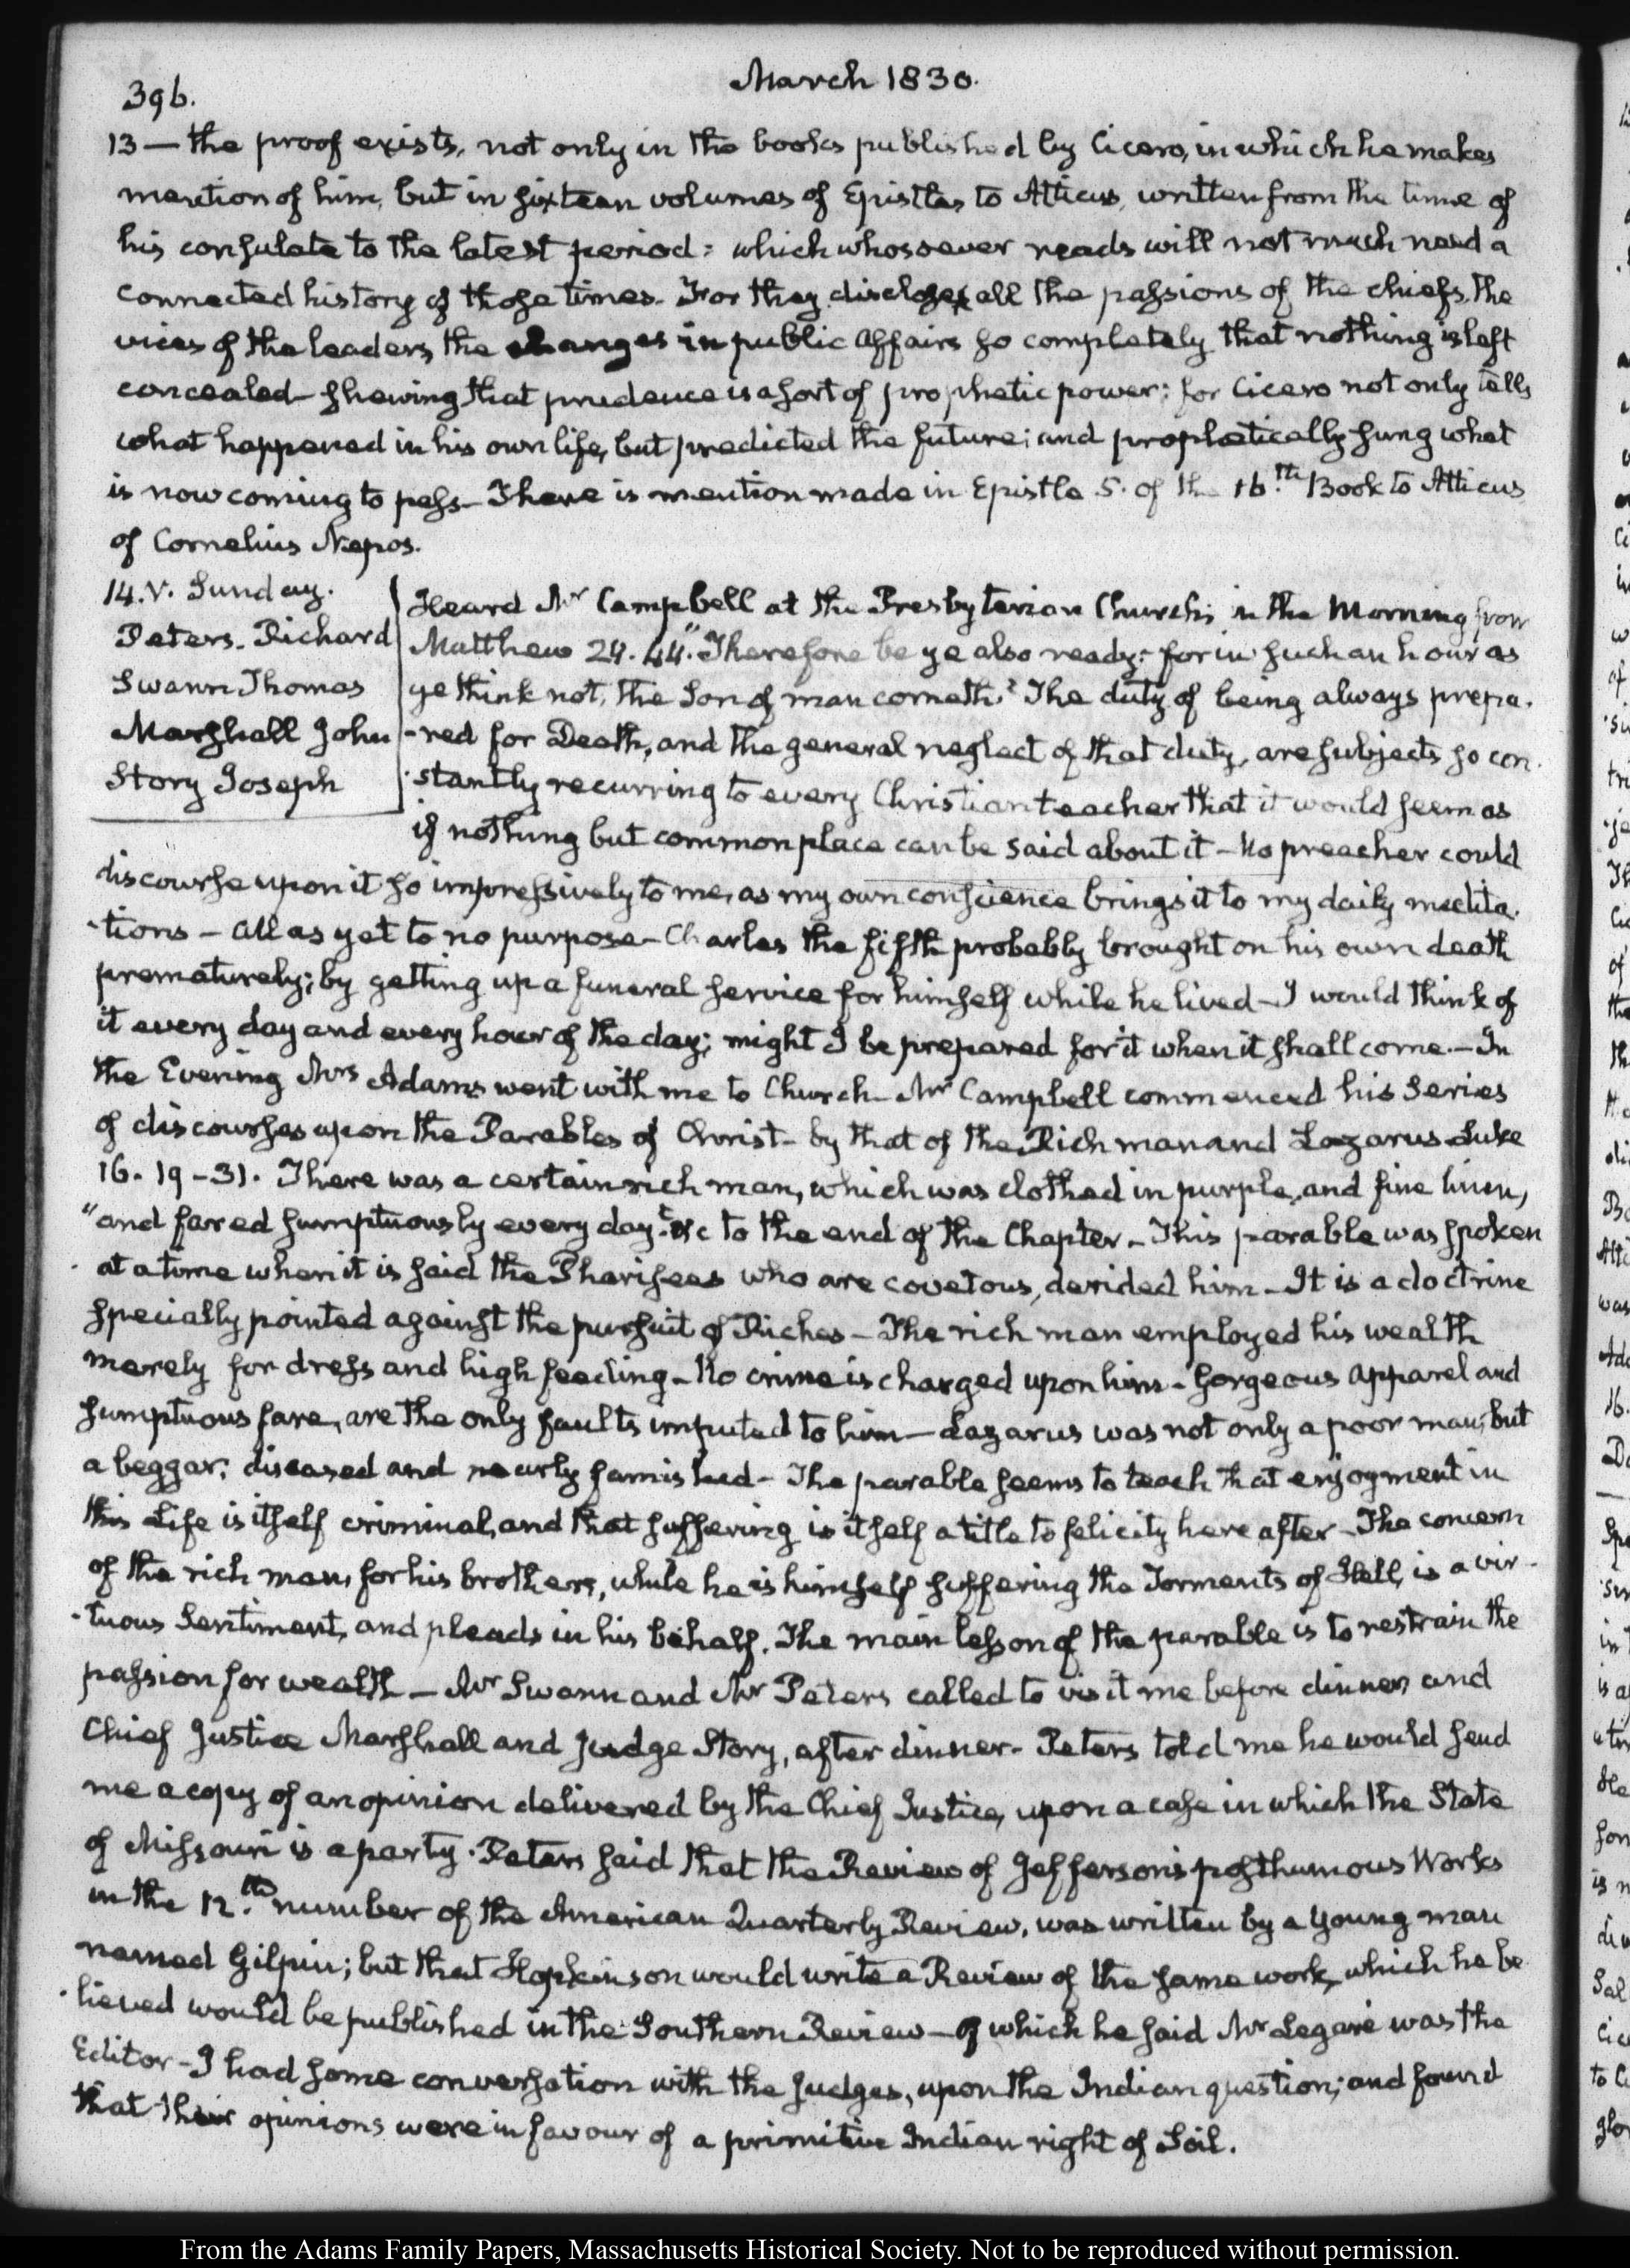 March 1830.
396.
13 — the proof exists, not only in the books published by Cicero, in which he makes
mention of him, but in sixteen volumes of Epistles to Atticus, written from the time of
his consulate to the latest period: which whosoever reads will not much need a
connected history of those times. For they disclose all the passions of the chiefs, the
vices of the leaders, the changes in public affairs so completely that nothing is left
concealed - shewing that prudence is a sort of prophetic power: for Cicero not only tells
what happened in his own life, but predicted the future; and prophetically sung what
is now coming to pass - There is mention made in Epistle 5. of the 16.th Book to Atticus
of Cornelius Nepos.
14. V. Sunday.
Peters. Richard
Swann Thomas
Marshall John
Story Joseph
Heard Mr Campbell at the Presbyterian Church; in the Morning from
Matthew 24. 44. "Therefore be ye also ready: for in such an hour as
ye think not, the Son of man cometh." The duty of being always prepa-
-red for Death, and the general neglect of that duty, are subjects so con-
-stantly recurring to every Christian teacher that it would seem as
if nothing but common place can be said about it - No preacher could
discourse upon it so impressively to me, as my own conscience brings it to my daily medita-
-tions - All as yet to no purpose - Charles the fifth probably brought on his own death
prematurely; by getting up a funeral service for himself while he lived - I would think of
it every day and every hour of the day; might I be prepared for it when it shall come. - In
the Evening Mrs Adams went with me to Church - Mr Campbell commenced his Series
of discourses upon the Parables of Christ - by that of the Rich man and Lazarus Luke
16. 19-31. There was a certain rich man, which was clothed in purple, and fine linen,
"and fared sumptuously every day" &c to the end of the Chapter - This parable was spoken
at a time when it is said the Pharisees who are covetous, derided him - It is a doctrine
specially pointed against the pursuit of Riches - The rich man employed his wealth
merely for dress and high feeding - No crime is charged upon him - Gorgeous apparel and
sumptuous fare, are the only faults imputed to him - Lazarus was not only a poor man, but
a beggar; diseased and nearly famished - The parable seems to teach that enjoyment in
this Life is itself criminal, and that suffering is itself a title to felicity hereafter - The concern
of the rich man, for his brothers, while he is himself suffering the Torments of Hell, is a vir-
-tuous Sentiment, and pleads in his behalf. The main lesson of the parable is to restrain the
passion for wealth - Mr Swann and Mr Peters called to visit me before dinner, and
Chief Justice Marshall and Judge Story, after dinner - Peters told me he would send
me a copy of an opinion delivered by the Chief Justice, upon a case in which the State
of Missouri is a party. Peters said that the Review of Jefferson's posthumous Works
in the 12.th number of the American Quarterly Review, was written by a young man
named Gilpin; but that Hopkinson would write a Review of the same work, which he be-
-lieved would be published in the Southern Review - of which he said Mr Legare was the
Editor - I had some conversation with the Judges, upon the Indian question; and found
that their opinions were in favour of a primitive Indian right of Soil.
From the Adams Family Papers, Massachusetts Historical Society. Not to be reproduced without permission.